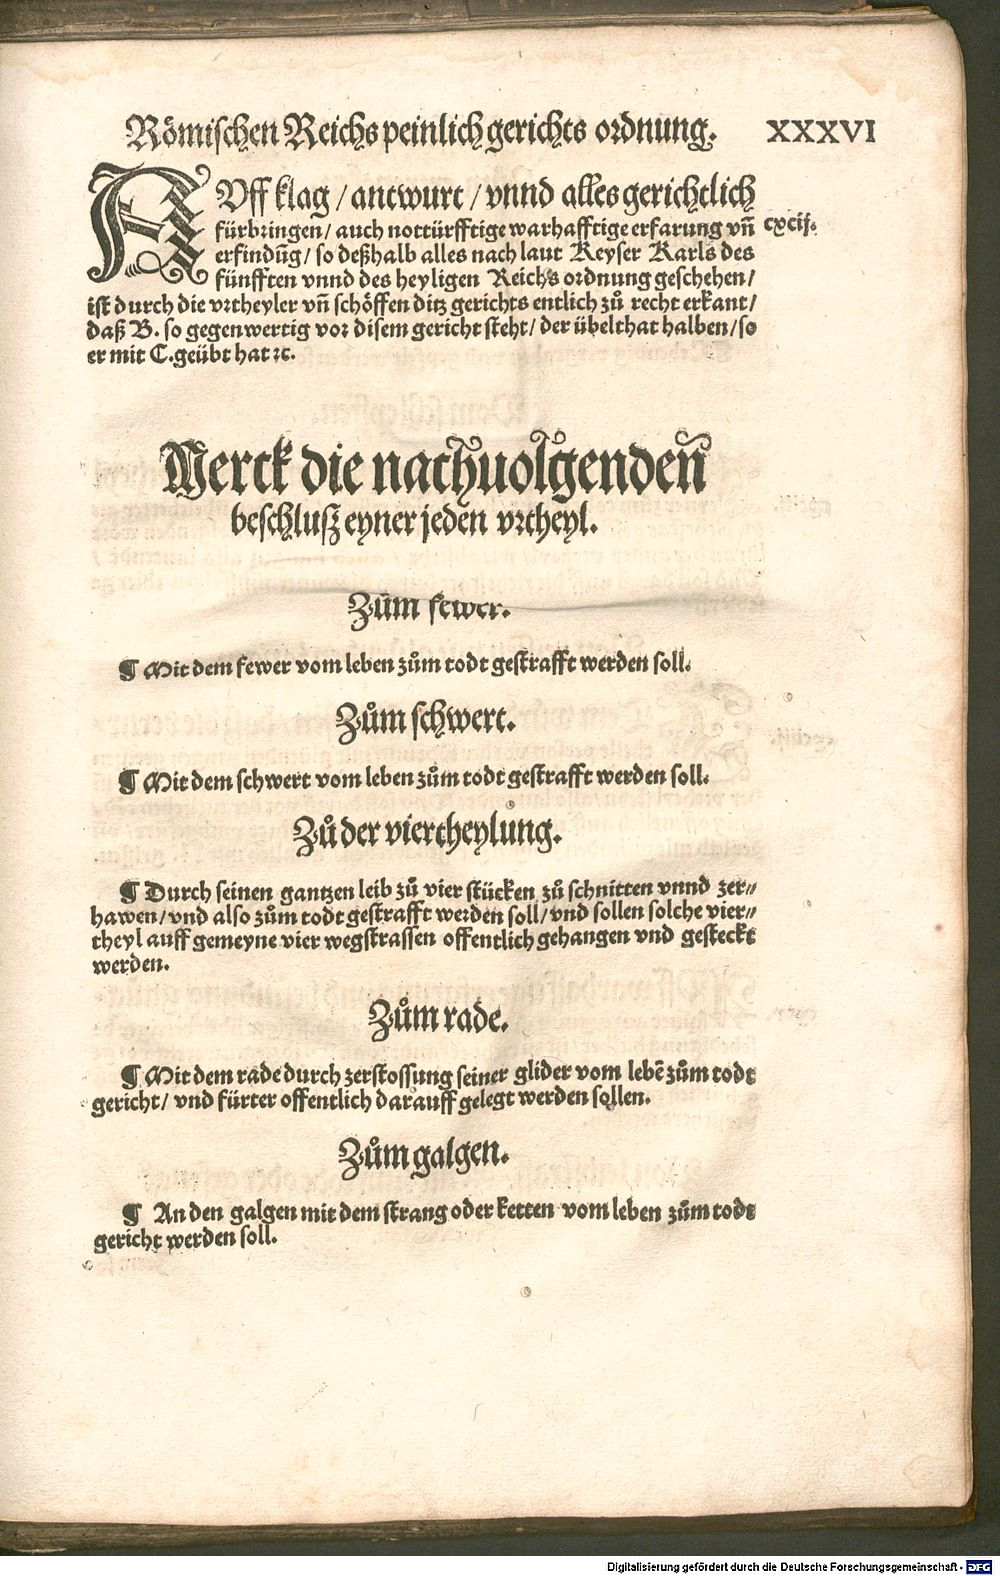 Römischen Reichs peinlich gerichts ordnung. XXXVI
AUff klag / antwurt / vnnd alles gerichtlich
fürbringen / auch nottürfftige warhafftige erfarung vñ cxcij.
erfindūg / so deßhalb alles nach laut Keyser Karls des
fünfften vnnd des heyligen Reichs ordnung geschehen /
ist durch die vrtheyler vñ schöffen ditz gerichts entlich zů recht erkant /
daß B. so gegenwertig vor disem gericht steht / der übelthat halben / so
er mit C. geübt hat ꝛc.
Merck die nachuolgendeñ
beschlusz eyner jeden vrtheyl.
Zům fewer.
¶ Mit dem fewer vom leben zům todt gestrafft werden soll.
Zům schwert.
¶ Mit dem schwert vom leben zům todt gestrafft werden soll.
Zů der viertheylung.
¶ Durch seinen gantzen leib zů vier stücken zů schnitten vnnd zer⸗
hawen / vnd also zům todt gestrafft werden soll / vnd sollen solche vier⸗
theyl auff gemeyne vier wegstrassen offentlich gehangen vnd gesteckt
werden.
Zům rade.
¶ Mit dem rade durch zerstossung seiner glider vom lebē zům todt
gericht / vnd fürter offentlich darauff gelegt werden sollen.
Zům galgen.
¶ An den galgen mit dem strang oder ketten vom leben zům todt
gericht werden soll.
Digitalisierung gefördert durch die Deutsche Forschungsgemeinschaft - DFG